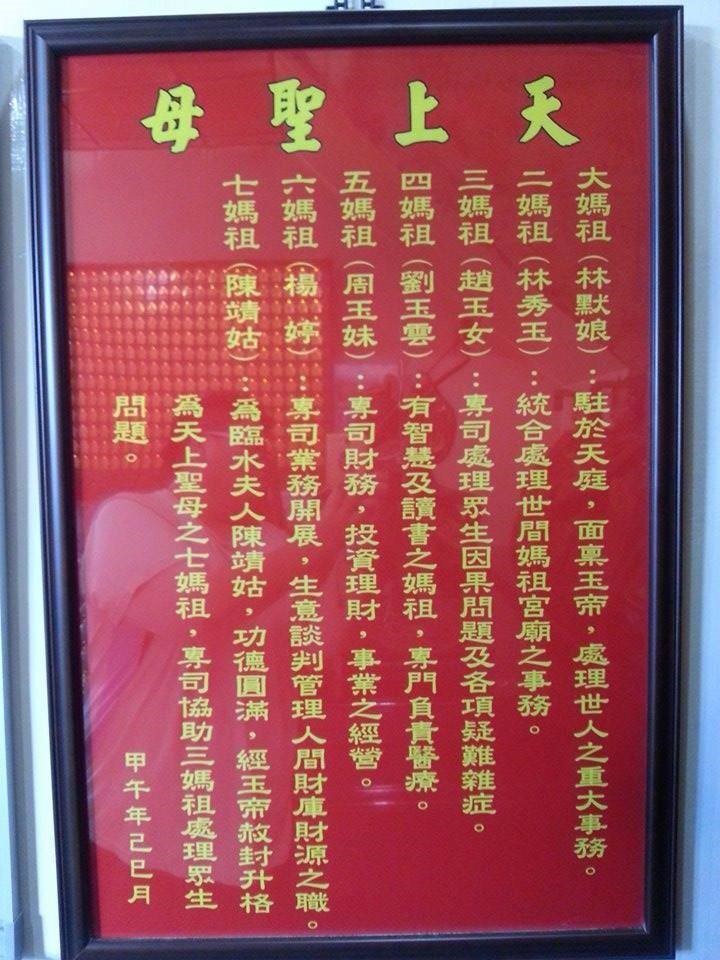 天上聖母
大媽祖（林默娘）：駐於天庭，面稟玉帝，處理世人之重大事務。
二媽祖（林秀玉）：統合處理世間媽祖宮廟之事務。
三媽祖（趙玉女）：專司處理眾生因果問題及各項疑難雜症。
四媽祖（劉玉雲）：有智慧及讀書之媽祖，專門自責醫療。
五媽祖（周玉妹）：專司財務，投資理財，事業之經營。
六媽祖（楊　婷）：專司業務開展，生意談判管理人間財庫財源之職。
七媽祖（陳靖姑）：為臨水夫人陳靖姑，功德圓滿，經玉帝敕封升格
為天上聖母之七媽祖，專司協助三媽祖處理眾生
問題。
甲午年己巳月